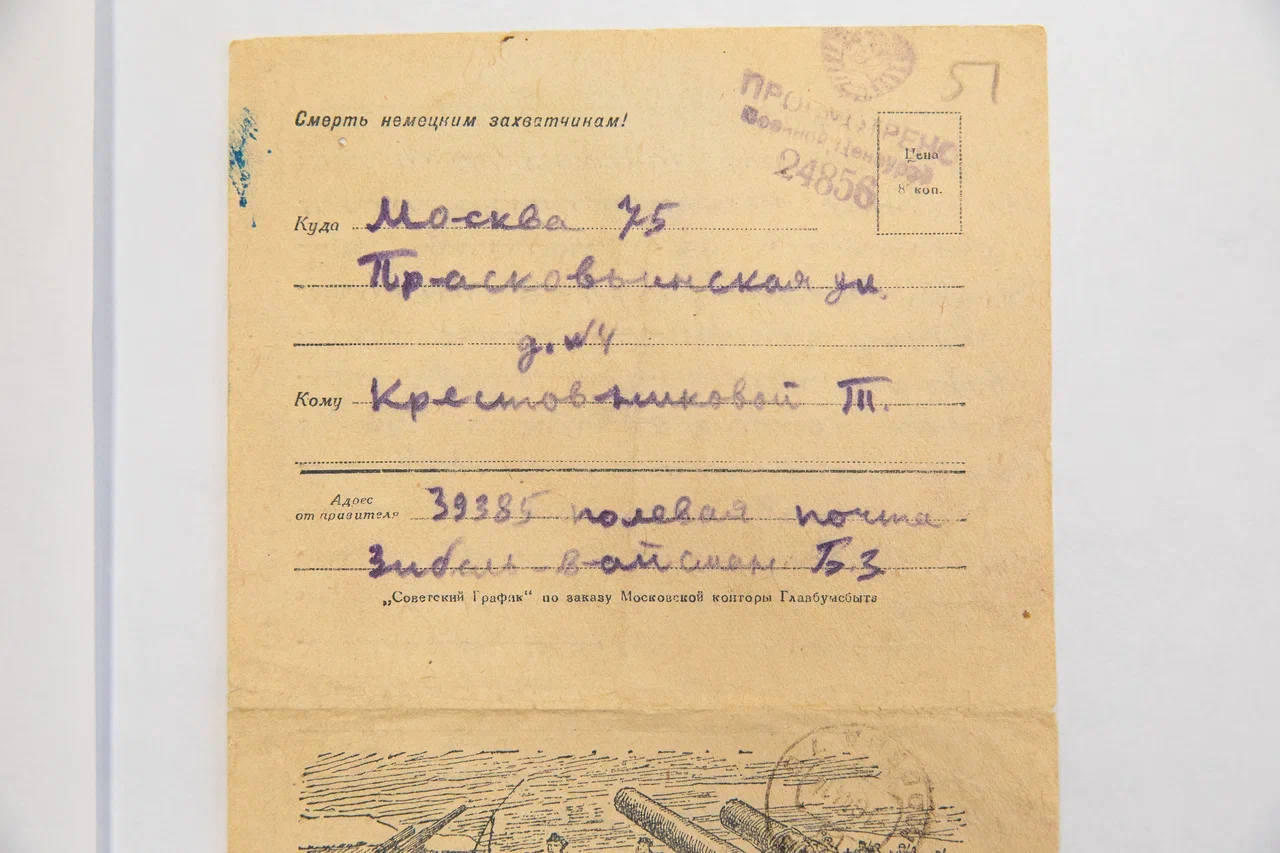 51
Смерть немецким захватчикам!
ПРОСМОТРЕНО
Военной Цензурой
24856
Цена
8 коп.
Куда Москва 75
Прасковьинская ул.
д. №4
Кому Крестовниковой Т.
Адрес
отправителя 39385 полевая почта
Зибель-Вайсман Б.З.
„Советский График“ по заказу Московской конторы Главбумсбыта